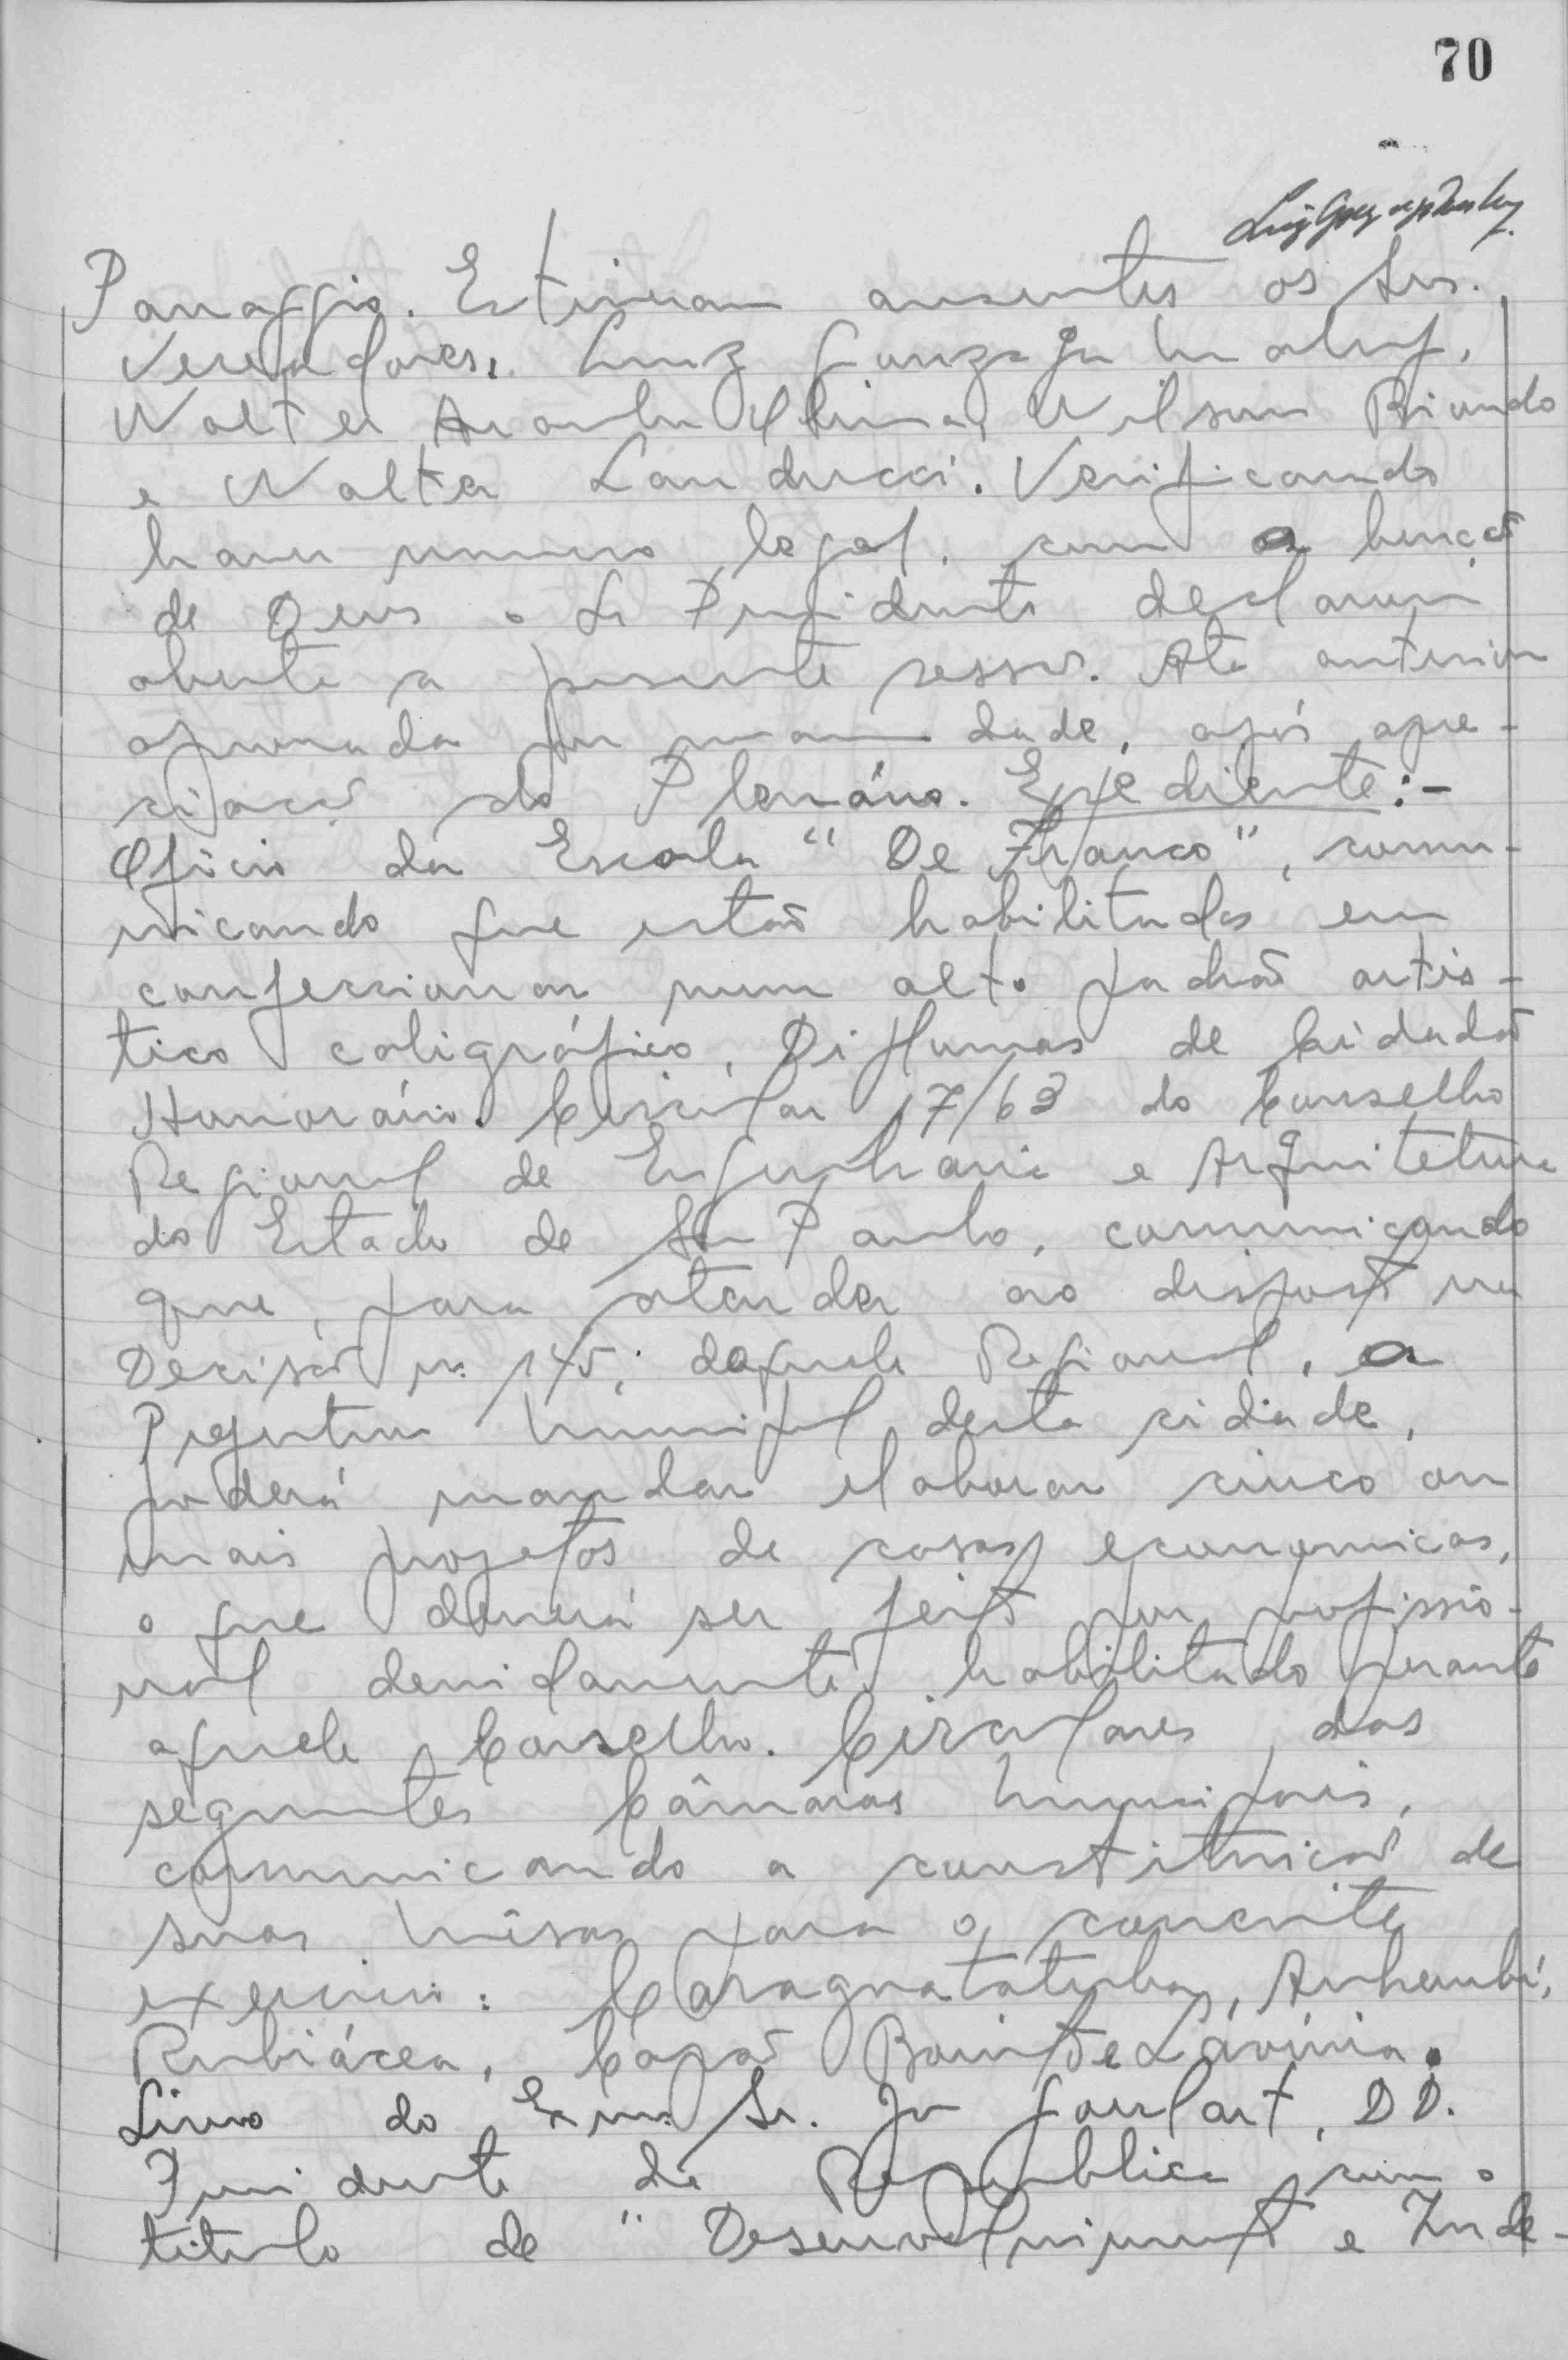 70
Panaggio. Estiveram ausentes os Srs.
Vereadores, Luiz Gonzaga Maluf,
Walter Lima, Wilson Biondo
e Walter Landucci. Verificando
haver numero legal, com a benção
de Deus o Sr Presidente declarou
aberta a presente sessão. Ata anterior
aprovada por unanimidade, após apre-
ciação do Plenário. Expediente:-
Oficio da Escola "De Franco", comu-
nicando que estão habilitados em
confeccionar num alto padrão artis-
tico caligráfico, Diplomas de Cidadão
Honorário. Circular 17/63 do Conselho
Regional de Engenharia e Arquitetura
do Estado de São Paulo, comunicando
que, para atender ao disposto na
Decisão n: 145, daquele Regional, a
Prefeitura Municipal desta cidade,
poderá mandar elaborar cinco ou
mais projetos de casas economicas,
o que deverá ser feito por profissio-
nal devidamente habilitado perante
aquele Conselho. Circulares das
seguintes Câmaras Municipais,
comunicando a constituição de
suas Mêsas para o corrente
exercicio: Caraguatatuba, Anhembí,
Rubiácea, Capão Bonito e Lavínia.
Livro do Exmo Sr. João Goulart, DD.
Presidente da Republica com o
titulo de "Desenvolvimento e Inde-